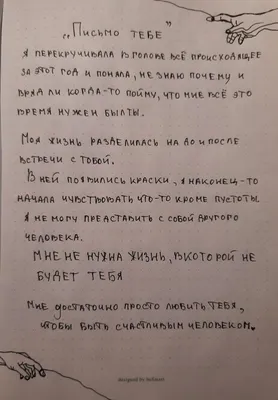 „Письмо тебе"
Я перекручивала в голове всё происходящее
за этот год и поняла, не знаю почему и
вряд ли когда-то пойму, что мне всё это
время нужен был ты.
Моя жизнь разделилась на до и после
встречи с тобой.
В ней появились краски, я наконец-то
начала чувствовать что-то кроме пустоты.
Я не могу представить с собой другого
человека.
Мне не нужна жизнь, в которой не
будет тебя
Мне достаточно просто любить тебя,
чтобы быть счастливым человеком.